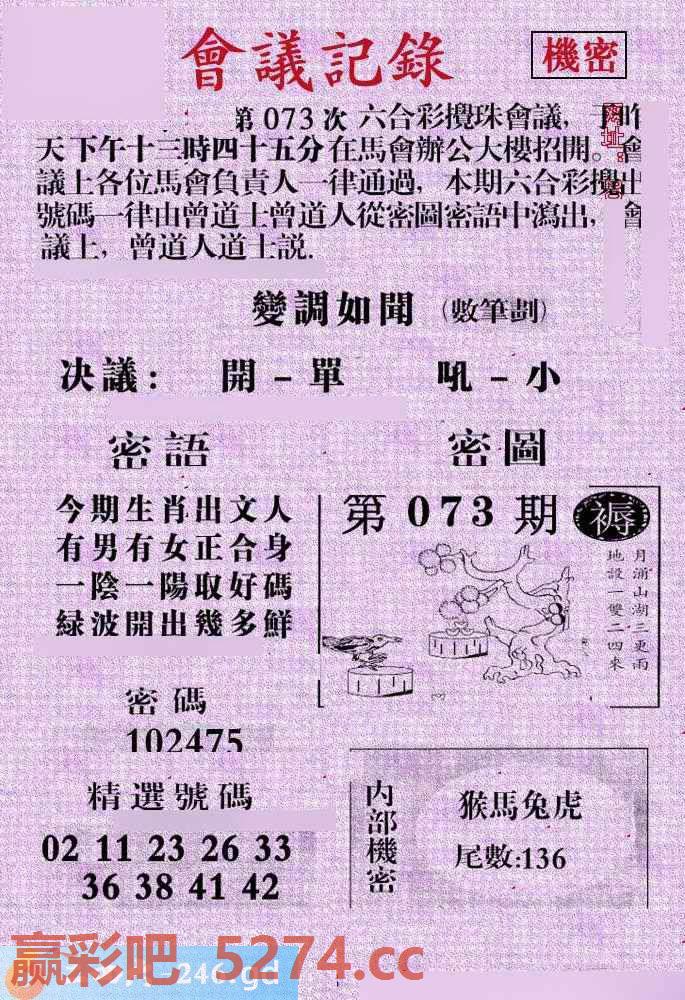 會議記錄
機密
第073次六合彩攪珠會議，
天下午十三時四十五分在馬會辦公大樓招開。會
議上各位馬會負責人一律通過，本期六合彩攪出
號碼一律由曾道士曾道人從密圖密語中瀉出，會
議上，曾道人道士説.
變調如聞（數筆劃）
决議：開－單 吼－小
密語
密圖
今期生肖出文人
有男有女正合身
一陰一陽取好碼
緑波開出幾多鮮
第073期
褥
月涌山湖三更雨
地設一雙二四來
密碼
102475
精選號碼
02 11 23 26 33
36 38 41 42
内部機密
猴馬兔虎
尾數:136
赢彩吧 5274.cc
246.gd